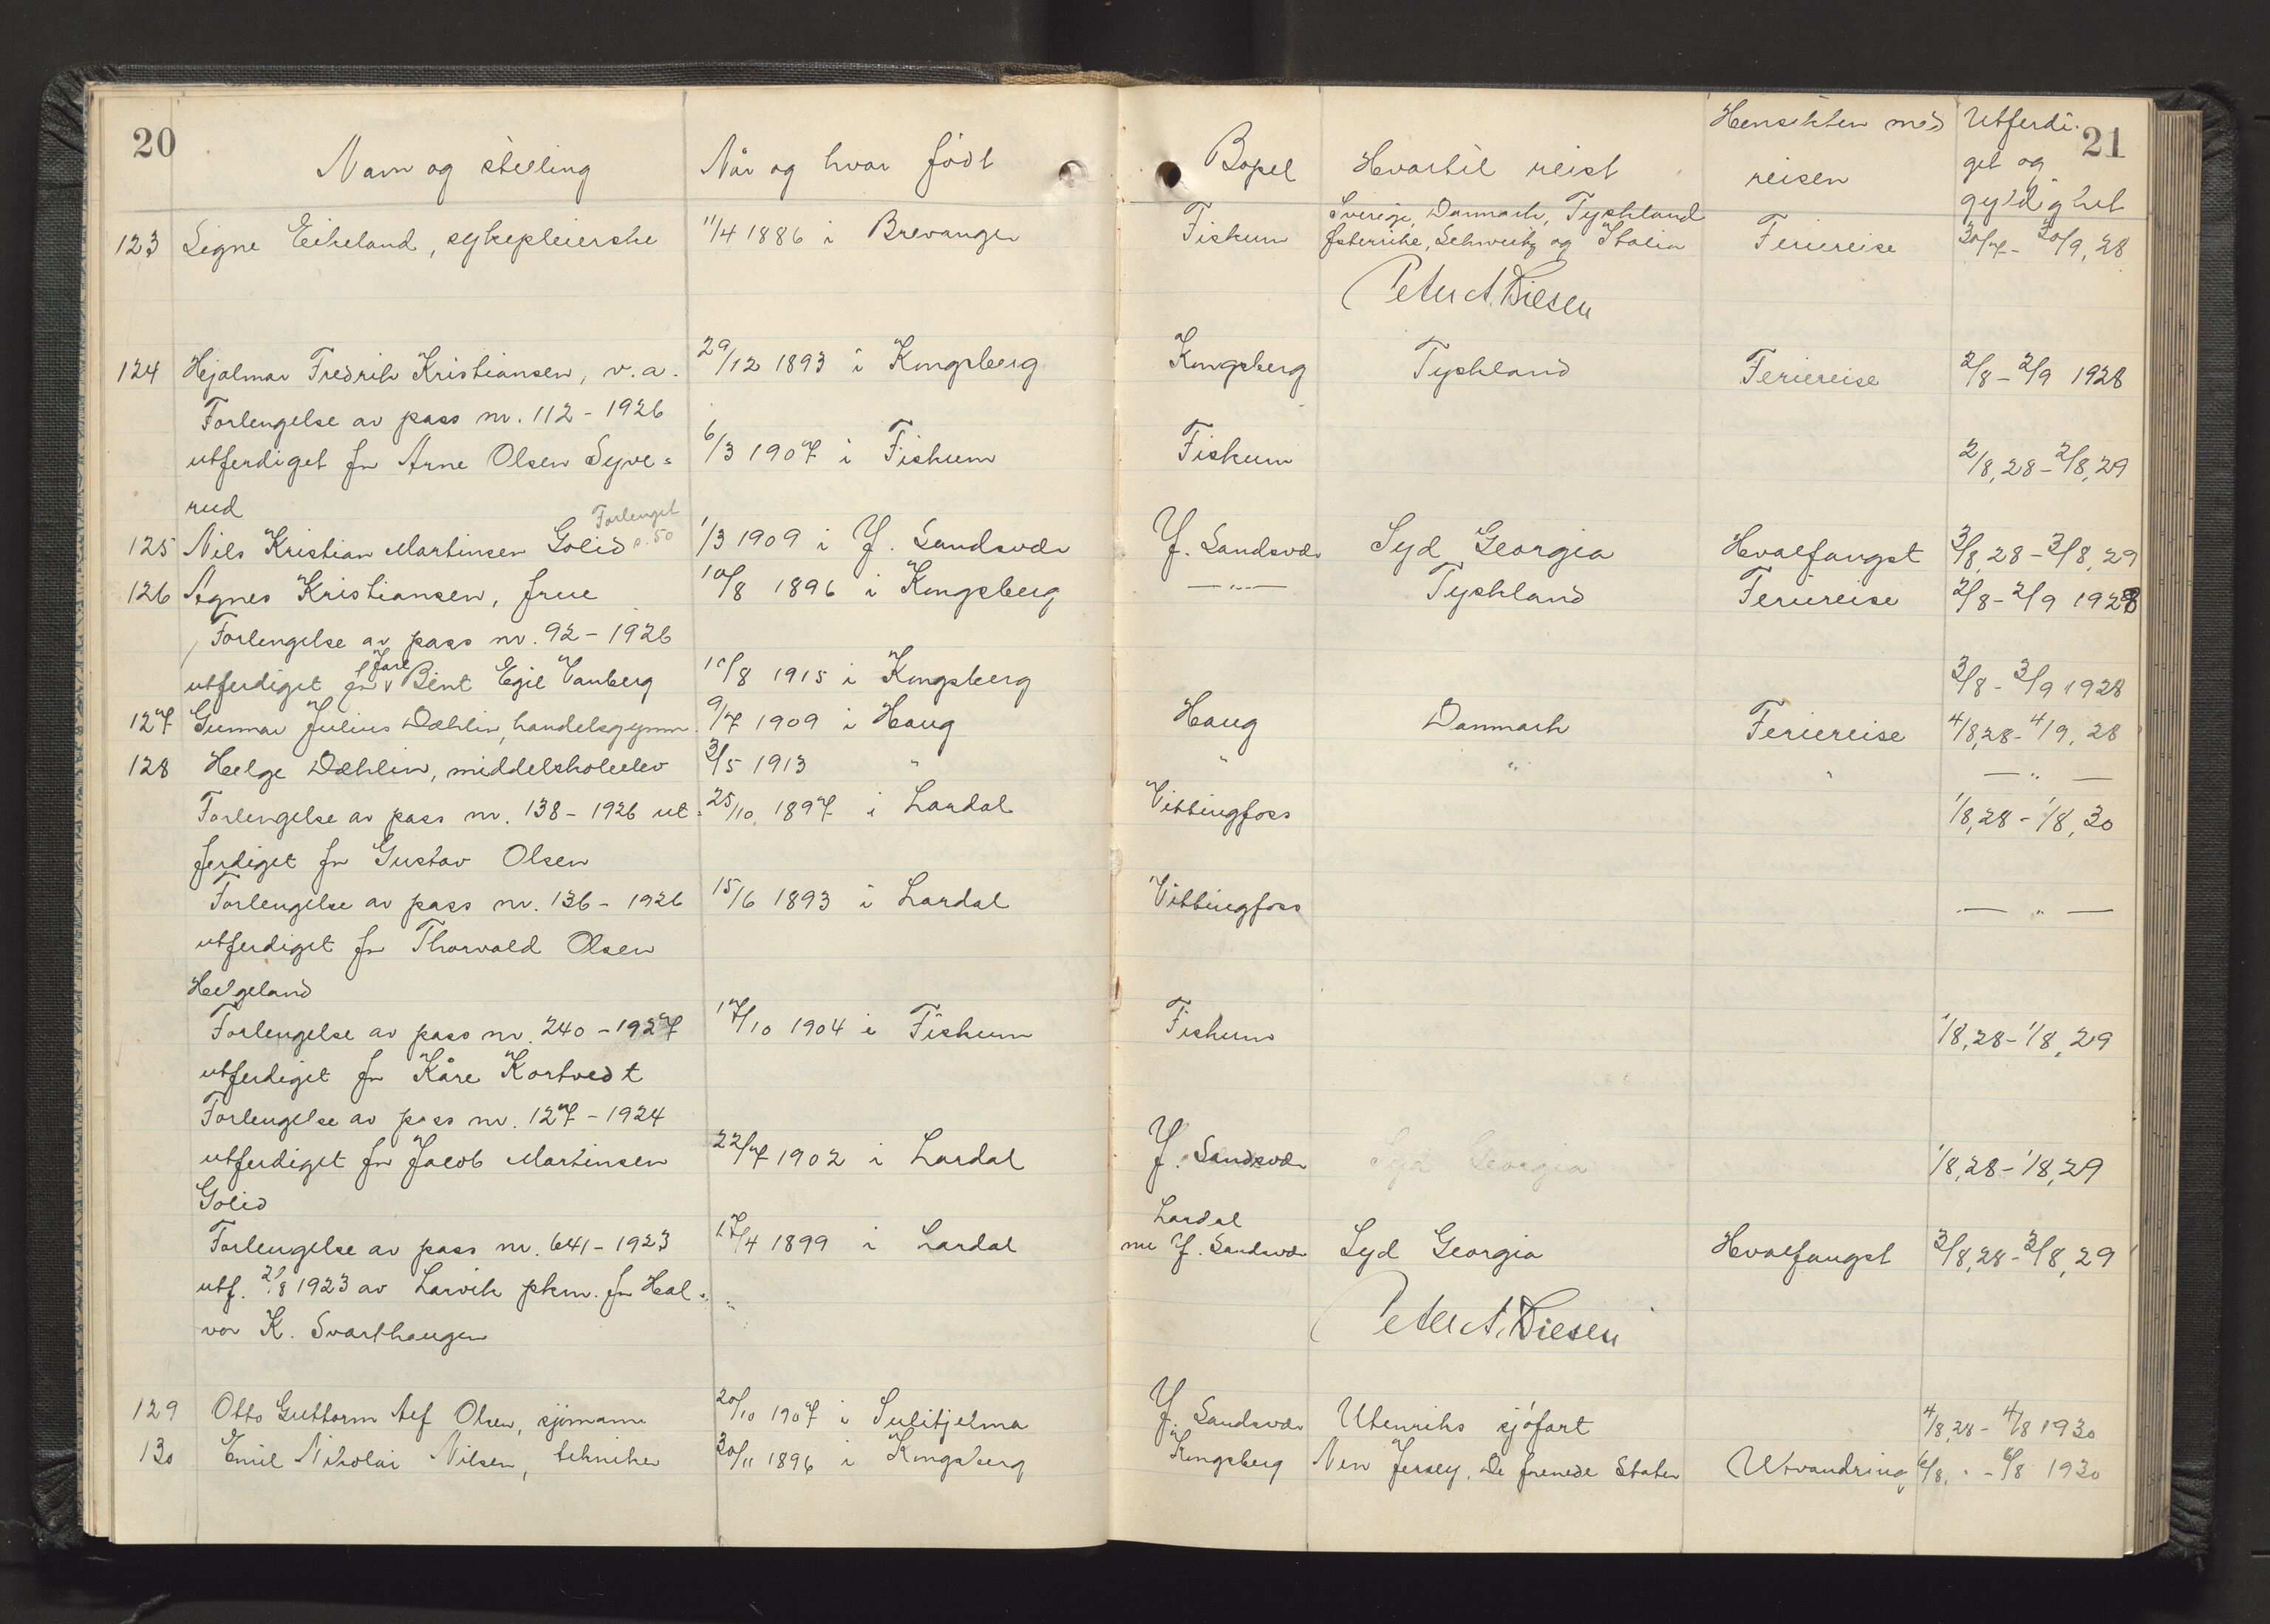 20
Navn og stilling Når og hvor født
123 Signe Eikeland, sykepleierske 11/4 1886 i Brevanger
124 Hjalmar Fredrik Kristiansen, v.a. 29/12 1893 i Kongsberg
Forlengelse av pass nr. 112 - 1926
utferdiget for Arne Olsen Syve= 6/3 1907 i Fiskum
rud
Forlenget
125 Nils Kristian Martinsen Golid s. 50 1/3 1909 i Y. Sandsvær
126 Agnes Kristiansen, frue 10/8 1896 i Kongsberg
Forlengelse av pass nr. 92 - 1926
Jarl
utferdiget for v Bent Egil Vanberg 10/8 1915 i Kongsberg
127 Gunnar Julius Dæhlin, handelsgymn. 9/7 1909 i Haug
128 Helge Dæhlin, middelskoleelev 3/5 1913 "
Forlengelse av pass nr. 138 - 1926 ut- 25/10 1897 i Lardal
ferdiget for Gustav Olsen
Forlengelse av pass nr. 136 - 1926 15/6 1893 i Lardal
utferdiget for Thorvald Olsen
Helgeland
Forlengelse av pass nr. 240 - 1927 17/10 1904 i Fiskum
utferdiget for Kåre Kortvedt
Forlengelse av pass nr. 127 - 1924
utferdiget for Jacob Martinsen 22/7 1902 i Lardal
Golid
Forlengelse av pass nr. 641 - 1923 17/4 1899 i Lardal
utf. 21/8 1923 av Larvik pkm. for Hal-
vor K. Svarthaugen
129 Otto Guttorm Alf Olsen, sjømann 20/10 1907 i Sulitjelma
130 Emil Nikolai Nilsen, tekniker 30/11 1896 i Kongsberg
21
Hensikten med Utferdi-
Bopel Hvortil reist reisen get og
gyldighet
Sverige, Danmark, Tyskland
Fiskum Østerrike, Schweitz og Italia Feriereise 30/7 - 30/9, 28
Peter A. Diesen
Kongsberg Tyskland Feriereise 2/8 - 2/9 1928
Fiskum 2/8, 28 - 2/8, 29
Y. Sandsvær Syd Georgia Hvalfangst 3/8, 28 - 3/8, 29
— " — Tyskland Feriereise 2/8 - 2/9 1928
3/8 - 3/9 1928
Haug Danmark Feriereise 4/8, 28 - 4/9, 28
" " " — " —
Vittingfoss 1/8, 28 - 1/8, 30
Vittingfoss — " —
Fiskum 1/8, 28 - 1/8, 29
Y. Sandsvær Syd Georgia 1/8, 28 - 1/8, 29
Lardal
nu Y. Sandsvær Syd Georgia Hvalfangst 3/8, 28 - 3/8, 29
Peter A. Diesen
Y. Sandsvær Utenriks sjøfart 4/8, 28 - 4/8 1930
Kongsberg New Jersey, De forenede Stater Utvandring 6/8, " - 6/8 1930